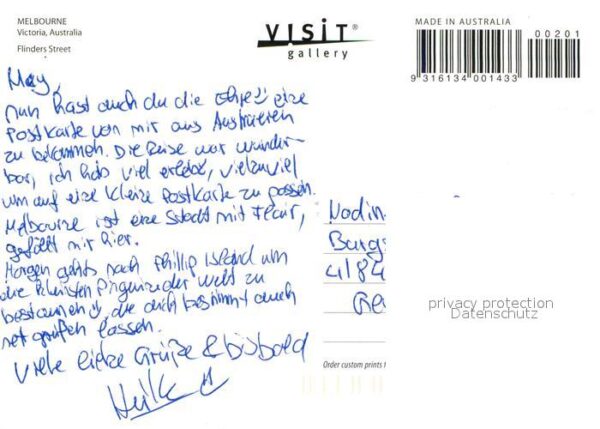 MELBOURNE
Victoria, Australia
Flinders Street
VISIT®
gallery
MADE IN AUSTRALIA
00201
9 316134 001433
Hey,
nun hast auch du die Ehre, eine
Postkarte von mir aus Australien
zu bekommen. Die Reise war wunder-
bar, ich hab viel erlebt, vielzuviel
um auf eine kleine Postkarte zu passen.
Melbourne ist eine Stadt mit Flair,
gefällt mir hier.
Morgen gehts nach Phillip Island um
die kleinsten Pinguine der Welt zu
bestaunen, die dich bestimmt auch
nett grüßen lassen.
Viele liebe Grüße & bisbald
Nadin
Burgs
4/84
Re
privacy protection
Datenschutz
Order custom prints f